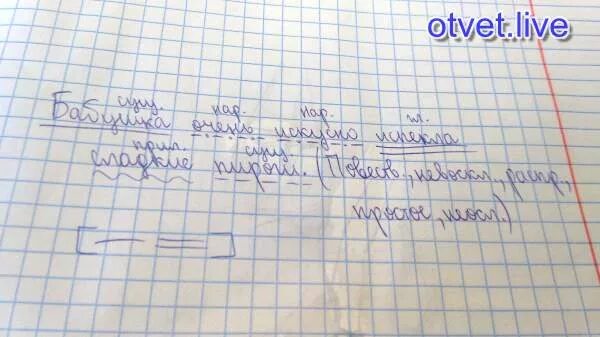 otvet.live
сущ. нар. нар. гл.
Бабушка очень искусно испекла
прил. сущ.
сладкие пироги. (Повеств., невоскл., распр.,
простое, неосл.)